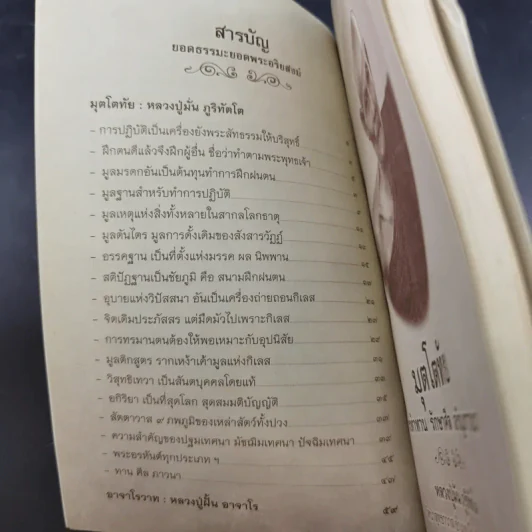 สารบัญ
ยอดธรรมะยอดพระอริยสงฆ์
มุตโตทัย : หลวงปู่มั่น ภูริทัตโต
- การปฏิบัติเป็นเครื่องยังพระสัทธรรมให้บริสุทธิ์
- ฝึกตนดีแล้วจึงฝึกผู้อื่น ชื่อว่าทำตามพระพุทธเจ้า
- มูลมรดกอันเป็นต้นทุนทำการฝึกฝนตน
- มูลฐานสำหรับทำการปฏิบัติ
- มูลเหตุแห่งสิ่งทั้งหลายในสากลโลกธาตุ
- มูลตันไตร มูลการตั้งเดิมของสังสารวัฏฏ์
- อรรคฐาน เป็นที่ตั้งแห่งมรรค ผล นิพพาน
- สติปัฏฐานเป็นชัยภูมิ คือ สนามฝึกฝนตน
- อุบายแห่งวิปัสสนา อันเป็นเครื่องถ่ายถอนกิเลส
- จิตเดิมประภัสสร แต่มืดมัวไปเพราะกิเลส
- การทรมานตนต้องให้พอเหมาะกับอุปนิสัย
- มูลติกสูตร รากเหง้าเค้ามูลแห่งกิเลส
- วิสุทธิเทวา เป็นสันตบุคคลโดยแท้ ๓๓
- อกิริยา เป็นที่สุดโลก สุดสมมติบัญญัติ ๓๕
- สัตตาวาส ๙ ภพภูมิของเหล่าสัตว์ทั้งปวง ๓๗
- ความสำคัญของปฐมเทศนา มัชฌิมเทศนา ปัจฉิมเทศนา ๓๙
- พระอรหันต์ทุกประเภท ฯ ๔๕
- ทาน ศีล ภาวนา ๔๗
อาจาโรวาท : หลวงปู่ฝั้น อาจาโร ๕๙
มุตโตทัย